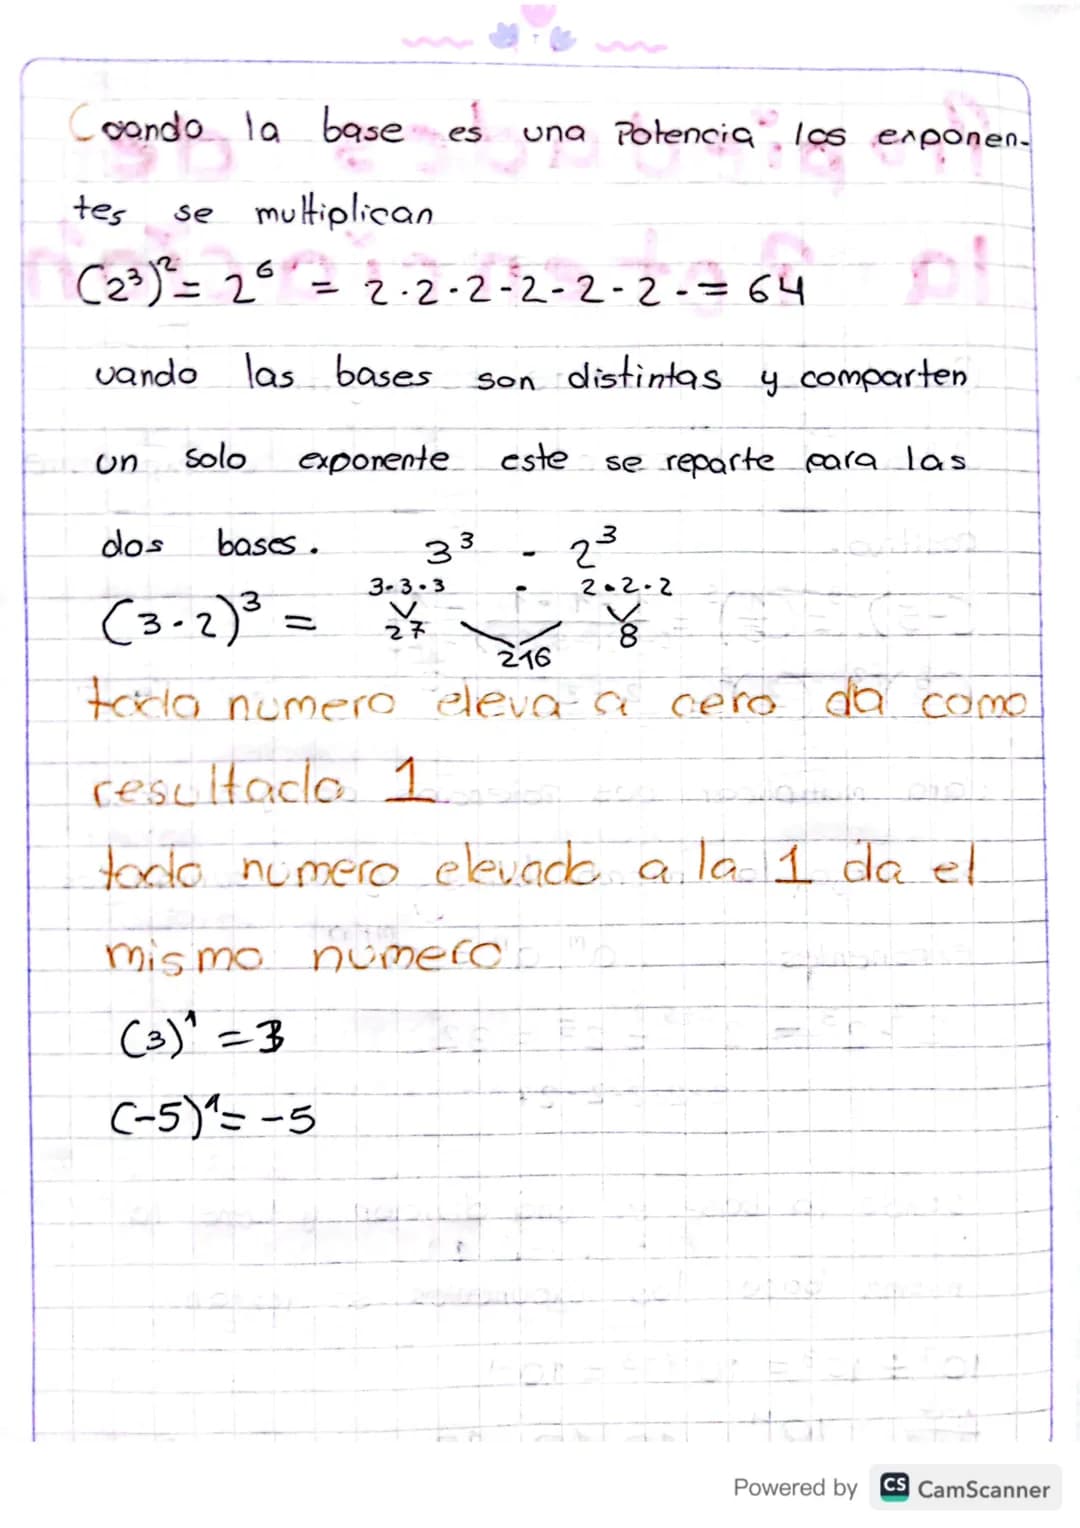 Cuando la base es una Potencia los exponen-
tes se multiplican
(2³)² = 2⁶ = 2·2·2-2-2-2-= 64
uando las bases son distintas y comparten
un solo exponente este se reparte para las
dos bases. 3³ - 2³
3-3·3 · 2·2·2
(3·2)³ =
27 8
216
todo numero eleva a cero da como
resultado 1
todo numero elevado a la 1 da el
mismo numero
(3)¹ = 3
(-5)¹ = -5
Powered by CS CamScanner